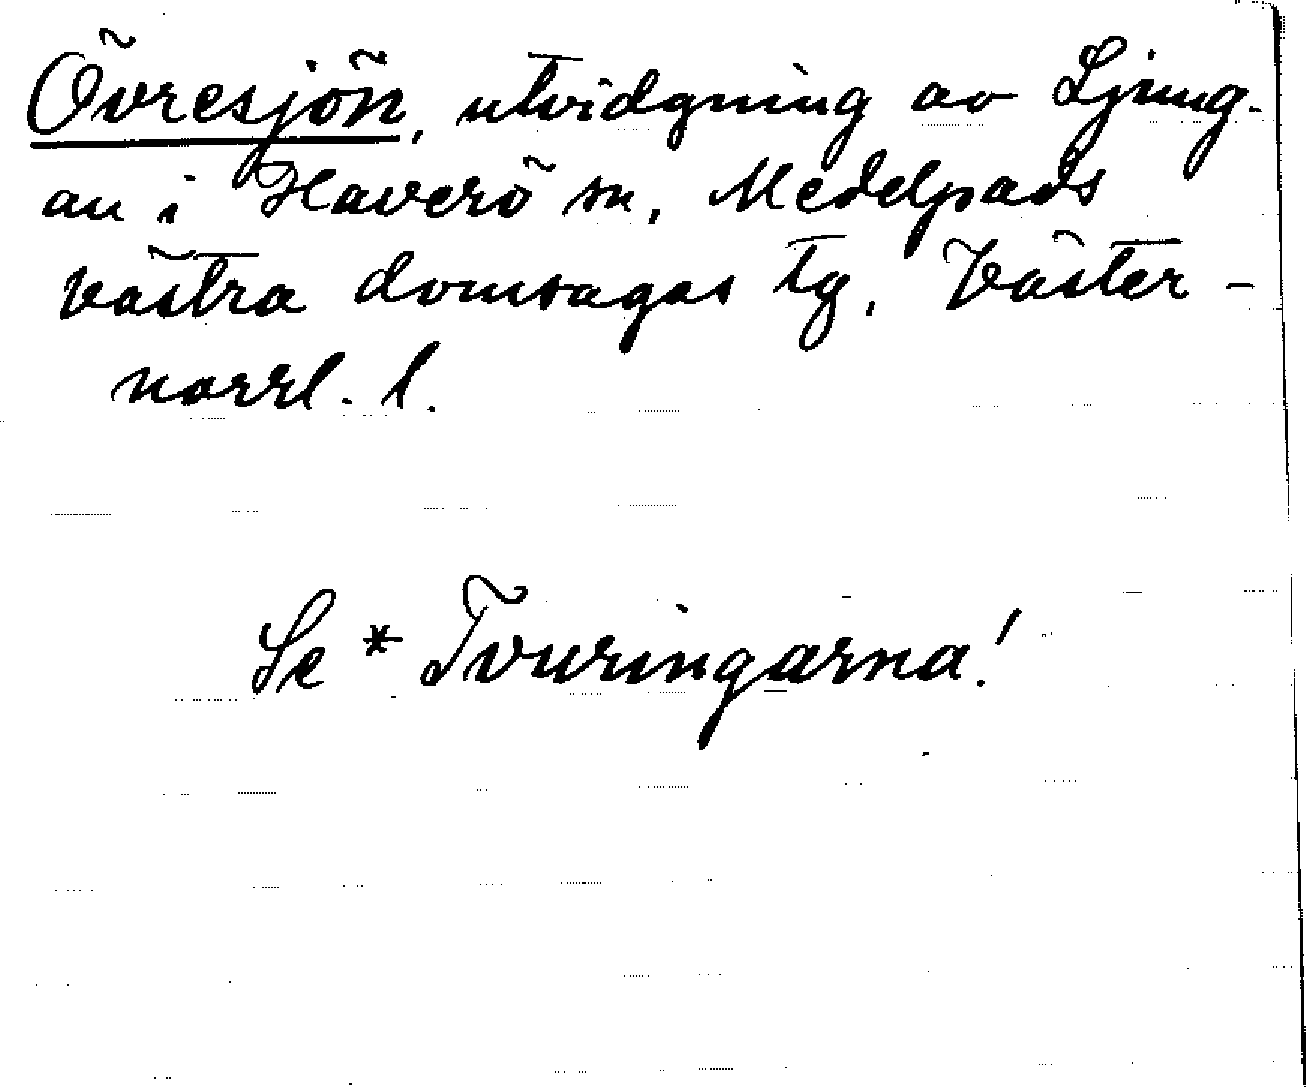 Övresjön, utvidgning av Ljung-
an i Haverö sn, Medelpads
västra domsagas tg, Väster-
norrl. l.
Se * Tvuringarna!